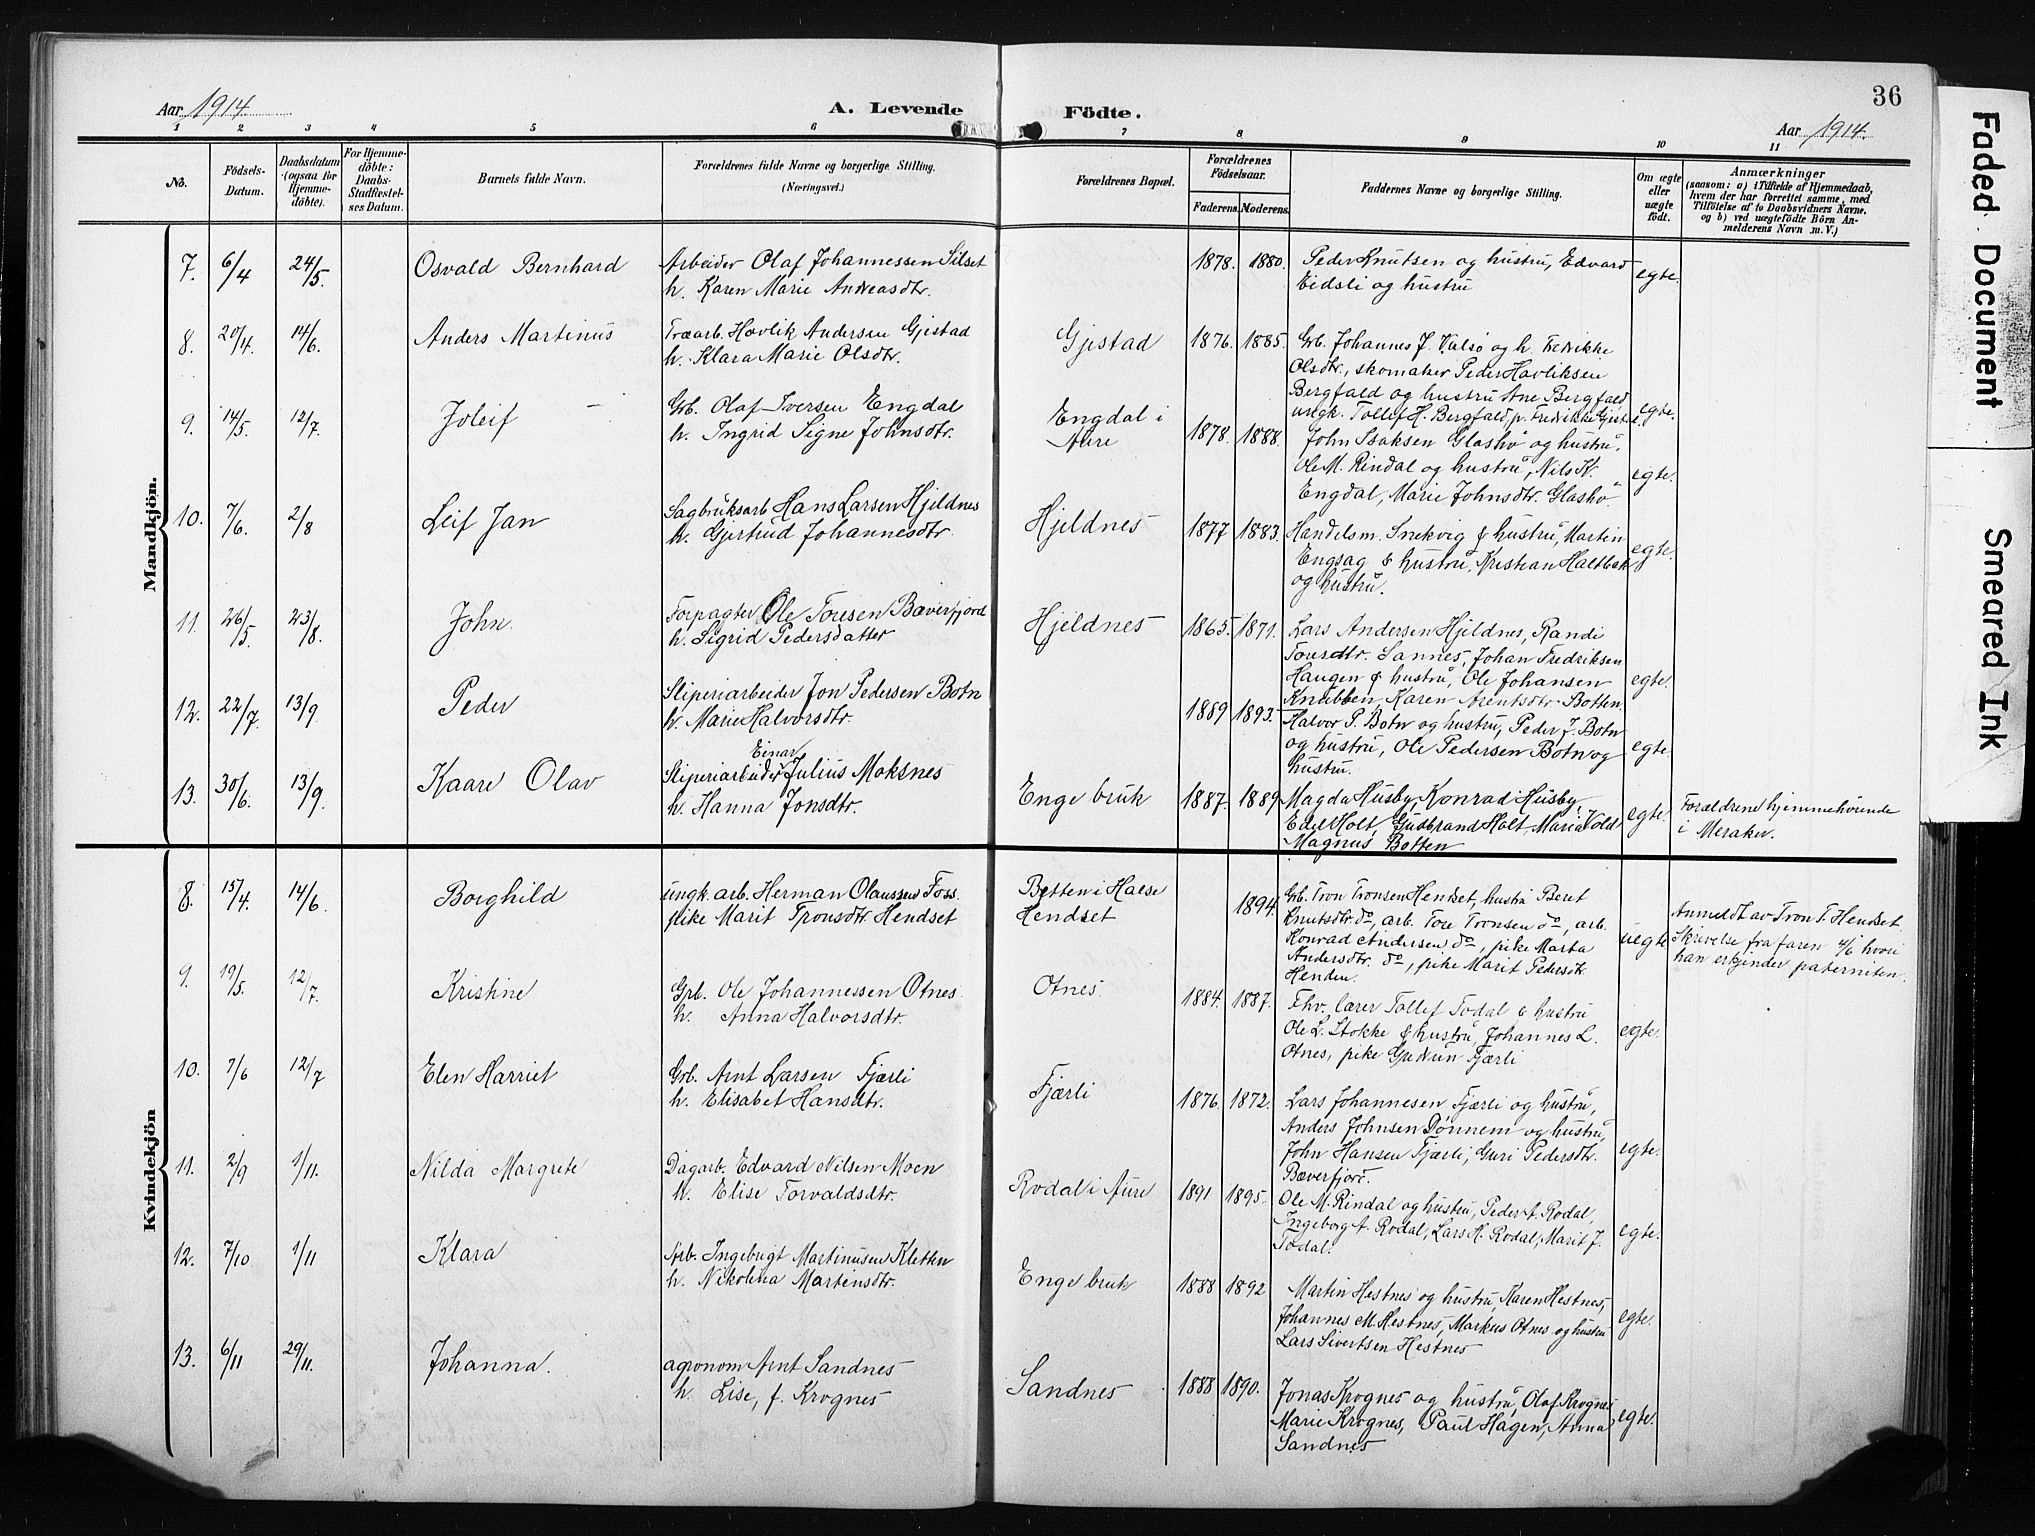 36
Aar 1914.
A. Levende Födte.
Aar 1914.
1 2 3 4 5 6 7 8 9 10 11
No.
Födsels-Datum.
Daabsdatum (ogsaa for Hjemmedöbte).
For Hjemmedöbte: Daabs-Stadfæstelses Datum.
Barnets fulde Navn.
Forældrenes fulde Navne og borgerlige Stilling.
(Næringsvei.)
Forældrenes Bopæl.
Forældrenes Födselsaar.
Faderens. Moderens.
Faddernes Navne og borgerlige Stilling.
Om ægte eller uægte födt.
Anmærkninger
(saasom: a) i Tilfælde af Hjemmedaab,
hvem der har forrettet samme, med
Tilföielse af to Daabsvidners Navne,
og b) ved uægtefödte Börn An-
melderens Navn m. V.)
Mandkjön.
7. 6/4 24/5. Osvald Bernhard
Arbeider Olaf Johannessen Silset
h. Karen Marie Andreasdtr.
1878. 1880.
Peder Knutsen og hustru, Edvard
Eidsli og hustru
egte.
8. 20/4. 14/6. Anders Martinus
Træarb. Havlik Andersen Gjestad
h. Klara Marie Olsdtr.
Gjestad 1876. 1885.
Grb. Johannes J. Valsø og h. Fredrikke
Olsdtr., skomaker Peder Havliksen
Bergfald og hustru Ane Bergfald
ungk. Tollef H. Bergfald, p. Fredrikke Gjestad.
egte.
9. 14/5. 12/7. Joleif
Grb. Olaf Iversen Engdal
h. Ingrid Signe Johnsdtr.
Engdal i
Aure
1878. 1888.
John Isaksen Glashø og hustru,
Ole M. Rindal og hustru, Nils K.
Engdal, Marie Johnsdtr. Glashø
egte.
10. 7/6. 2/8 Leif Jan
Sagbruksarb Hans Larsen Hjeldnes
h. Gjertrud Johannesdtr.
Hjeldnes 1877 1883.
Handelsm. Snekvig & hustru, Marten
Engsag & hustru, Kristian Haltbak
og hustru.
egte.
11. 26/5. 23/8. John.
Forpagter Ole Toresen Bæverfjord
h. Sigrid Pedersdatter
Hjeldnes 1865. 1871.
Lars Andersen Hjeldnes, Randi
Toresdtr. Sannes, Johan Fredriksen
Haugen & hustru, Ole Johansen
Knubben, Karen Arentsdtr. Botten.
egte.
12. 22/7. 13/9. Peder
Sliperiarbeider Jon Pedersen Botn
h. Marie Halvorsdtr.
1889 1893.
Halvor P. Botn og hustru, Peder J. Botn
og hustru, Ole Pedersen Botn og
hustru.
egte.
13. 30/6. 13/9. Kaare Olav
Einar
Sliperiarbeider Julius Moksnes
h. Hanna Jonsdtr.
Enge bruk 1887. 1889
Magda Husby, Konrad Husby,
Edel Holt, Gudbrand Holt, Maria Vold
Magnus Botten
egte.
Forældrene hjemmehørende
i Meraker.
Kvindekjön
8. 15/4. 14/6. Borghild
ungk. arb. Herman Olaussen Foss
pike Marit Tronsdtr. Hendset
Betten i Halse
Hendset
1894.
Grb. Tron Tronsen Hendset, hustru Beret
Knutsdtr. do, arb. Tore Tronsen do, arb.
Konrad Andersen do, pike Marta
Andersdtr. do, pike Marit Pedersdtr.
Henden.
uegte
Anmeldt av Tron T. Hendset.
Skrivelse fra faren 4/6 hvori
han erkjender paterniteten.
9. 19/5. 12/7. Kristine
Grb. Ole Johannessen Otnes.
h. Anna Halvorsdtr.
Otnes. 1884. 1887.
Fhv. lærer Tollef Todal & hustru
Ole L. Stokke & hustru, Johannes L.
Otnes, pike Gudrun Fjærli
egte.
10. 7/6 12/7 Elen Harriet
Grb. Arnt Larsen Fjærli
h. Elisabet Hansdtr.
Fjærli 1876. 1872.
Lars Johannesen Fjærli og hustru,
Anders Johnsen Dønnem og hustru,
John Hansen Fjærli, Guri Pedersdtr.
Bæverfjord.
egte.
11. 2/9 1/11. Nilda Margrete
Dagarb. Edvard Nilsen Moen
h. Elise Torvaldsdtr.
Rodal i Aure 1891 1895.
Ole M. Rindal og hustru, Peder A. Rodal,
Ingeborg A. Rodal, Lars H. Rodal, Marit J.
Todal.
egte.
12. 7/10. 1/11 Klara
Arb. Ingebrigt Martinusen Kletten
h. Nikolina Martensdtr.
Enge bruk 1888 1892
Martin Hestnes og hustru, Karen Hestnes,
Johannes M. Hestnes, Markus Otnes og hustru
Lars Sivertsen Hestnes
egte.
13. 6/11 29/11. Johanna.
agronom Arnt Sandnes
h. Lise, f. Krognes
Sandnes 1888 1890.
Jonas Krognes og hustru, Olaf Krognes
Marie Krognes, Paul Hagen, Anna
Sandnes
egte.
Faded Document
Smeared Ink